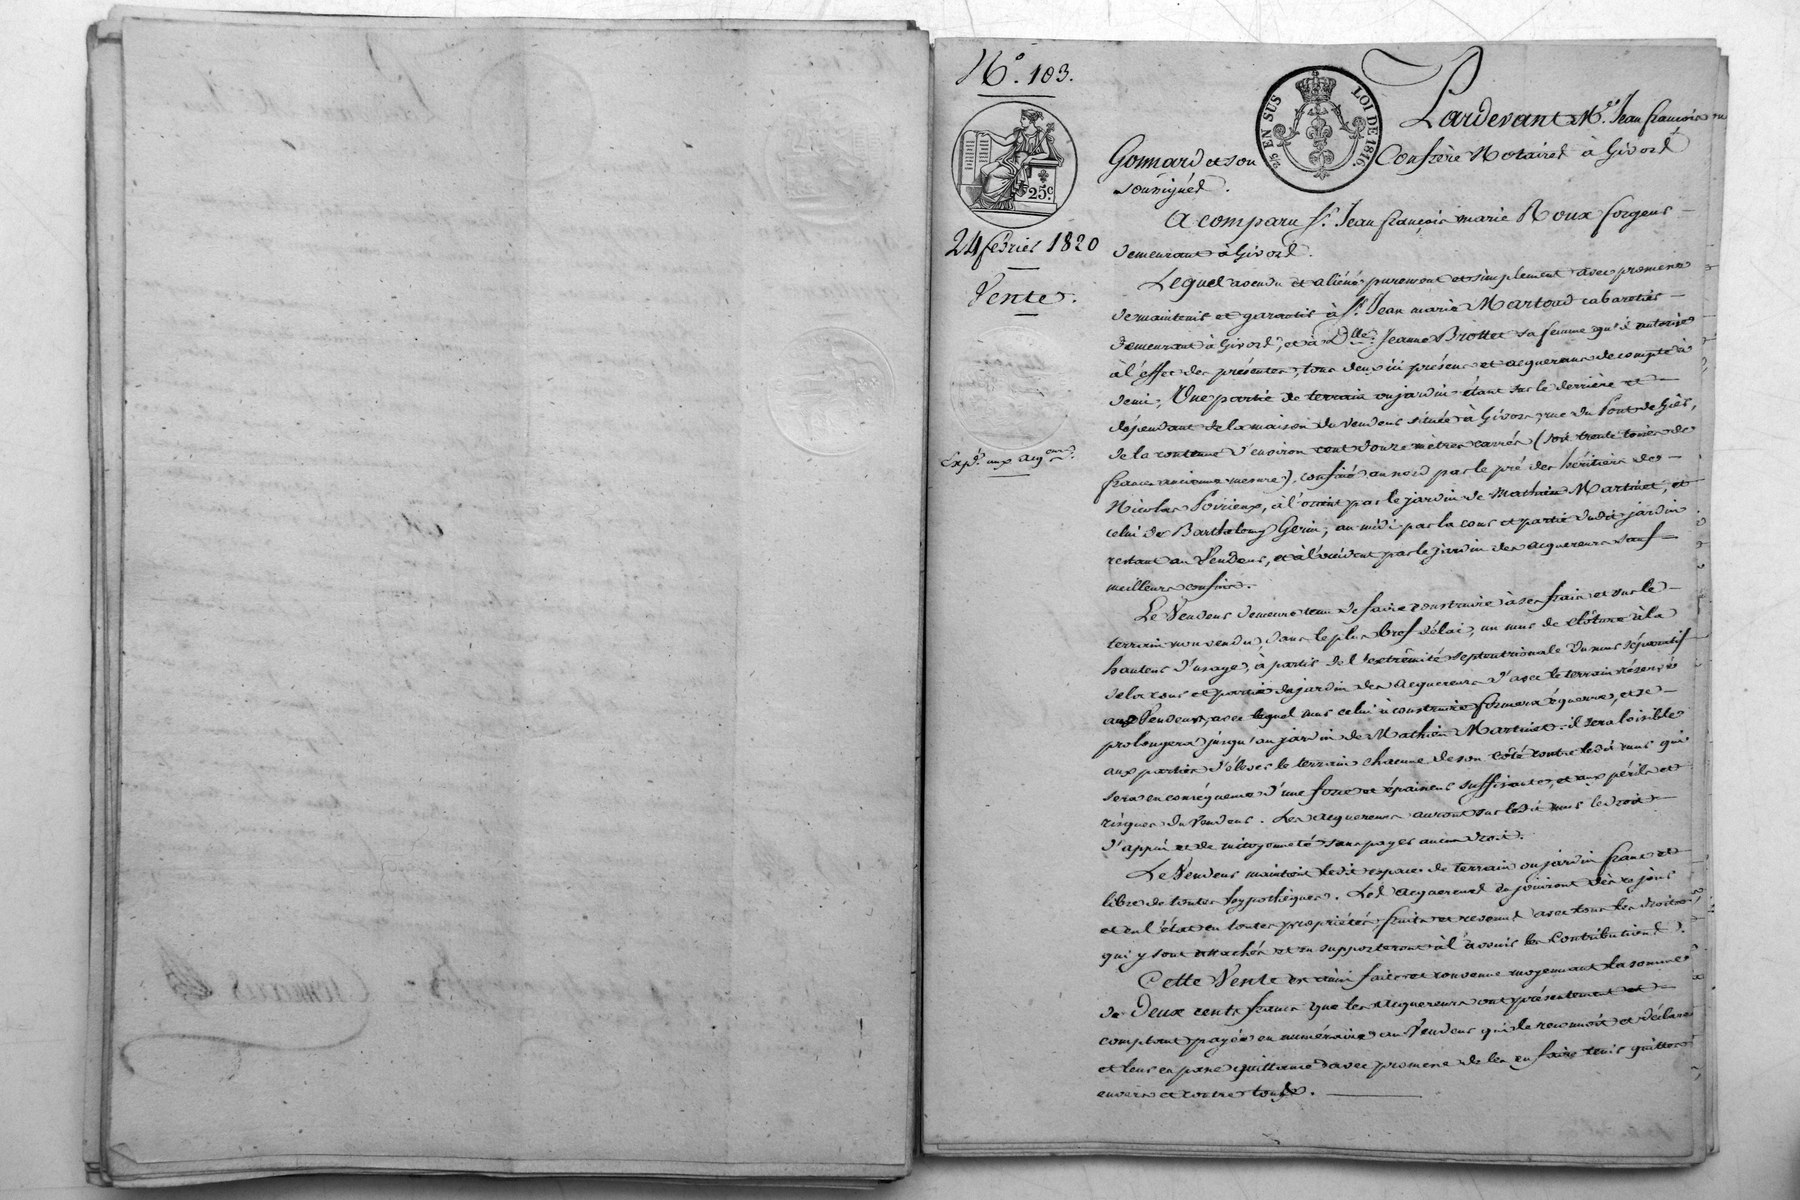 N.° 103.
25.c
24 février 1820
Vente.
Expd. aux acq
25 EN SUS LOI DE 1816.
Pardevant M.e Jean françois
Gonnard et son Confrère Notaires à Givors
soussignés.
A comparu Sr. Jean françois marie Roux forgeur
demeurant à Givors.
Lequel a vendu et aliéné purement et simplement avec promesse
de maintenir et garantir à Sr. Jean marie Martoud cabaretier
demeurant à Givors, et à Dlle. Jeanne Brottet sa femme qu'il autorise
à l'effet des présentes, tous deux ici présens et acquereurs de compte à
demi, Une partie de terrain ou jardin étant sur le derrière et
dépendant de la maison du vendeur située à Givors, rue du Pont de Gier,
de la contenue d'environ cent douze mètres carrés (soit trente toises de
france ancienne mesure), confiné au nord par le pré des héritiers de
Nicolas Poirieux, à l'orient par le jardin de Mathieu Martinet, et
celui de Barthelemy Gerin, au midi par la cour et partie dudit jardin
restant au Vendeur, et à l'occident par le jardin des acquereurs sauf
meilleurs confins.
Le Vendeur demeure tenu de faire construire à ses frais et sur le
terrain non vendu, dans le plus bref délai, un mur de clôture à la
hauteur d'usage, à partir de l'extrêmité septentrionale du mur séparatif
de la cour et partie du jardin des acquereurs d'avec le terrain réservé
au Vendeur, avec lequel mur celui à construire formera équerre, et se
prolongera jusqu'au jardin de Mathieu Martinet. il sera loisible
aux parties d'élever le terrain chacune de son côté contre ledit mur qui
sera en conséquence d'une force et épaisseur suffisante, et aux périls et
risques du Vendeur. Les acquereurs auront sur ledit mur le droit
d'appui et de mitoyenneté sans payer aucun droit.
Le Vendeur maintient ledit espace de terrain ou jardin franc et
libre de toutes hypothèques. Les acquereurs en jouiront dès ce jour
et en l'état en toutes propriétés, fruits et revenus avec tous les droits
qui y sont attachés et en supporteront à l'avenir les Contributions.
Cette Vente est ainsi faite et convenue moyennant la somme
de Deux cents francs que les acquereurs ont présentement et
comptant payée en numéraire au Vendeur qui le reconnoit et déclare
et leur en passe quittance avec promesse de les en faire tenir quittes
envers et contre tous.